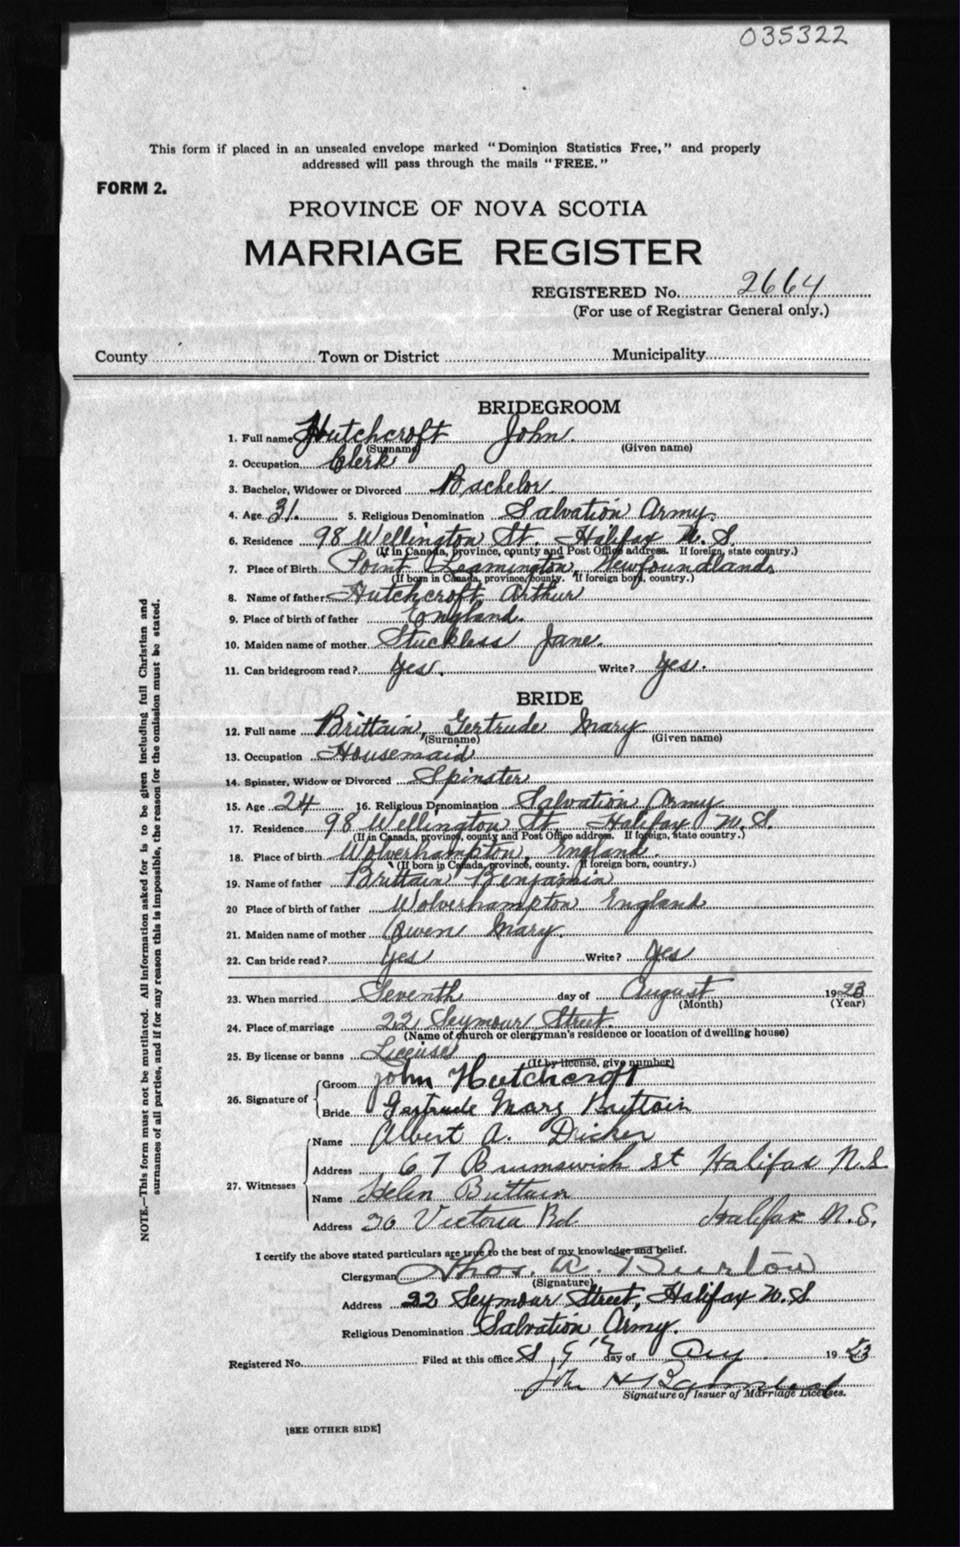 035322
This form if placed in an unsealed envelope marked "Dominion Statistics Free," and properly
addressed will pass through the mails "FREE."
FORM 2.
PROVINCE OF NOVA SCOTIA
MARRIAGE REGISTER
REGISTERED No. 2664
(For use of Registrar General only.)
County Town or District Municipality
BRIDEGROOM
1. Full name Hutchcroft John.
(Surname) (Given name)
2. Occupation Clerk
3. Bachelor, Widower or Divorced Bachelor.
4. Age 31. 5. Religious Denomination Salvation Army.
6. Residence 98 Wellington St. Halifax N.S.
(If in Canada, province, county and Post Office address. If foreign, state country.)
7. Place of Birth Point Leamington, Newfoundland
(If born in Canada, province, county. If foreign born, country.)
8. Name of father Hutchcroft Arthur
9. Place of birth of father England.
10. Maiden name of mother Stuckless Jane.
11. Can bridegroom read? Yes. Write? Yes.
BRIDE
12. Full name Brittain, Gertrude Mary
(Surname) (Given name)
13. Occupation Housemaid
14. Spinster, Widow or Divorced Spinster
15. Age 24 16. Religious Denomination Salvation Army
17. Residence 98 Wellington St. Halifax N.S.
(If in Canada, province, county and Post Office address. If foreign, state country.)
18. Place of birth Wolverhampton, England.
(If born in Canada, province, county. If foreign born, country.)
19. Name of father Brittain Benjamin
20 Place of birth of father Wolverhampton England
21. Maiden name of mother Owen Mary.
22. Can bride read? Yes Write? Yes
23. When married Seventh day of August 1923
(Month) (Year)
24. Place of marriage 22 Seymour Street.
(Name of church or clergyman's residence or location of dwelling house)
25. By license or banns License
(If by license, give number)
26. Signature of Groom John Hutchcroft
Bride Gertrude Mary Brittain
27. Witnesses Name Albert A. Dicker
Address 67 Brunswick St Halifax N.S
Name Helen Brittain
Address 26 Victoria Rd. Halifax N.S.
I certify the above stated particulars are true to the best of my knowledge and belief.
Clergyman Thos. A. Burton
(Signature)
Address 22 Seymour Street, Halifax N.S
Religious Denomination Salvation Army.
Registered No. Filed at this office day of Aug 1923
John H
Signature of Issuer of Marriage Licenses.
[SEE OTHER SIDE]
NOTE.—This form must not be mutilated. All information asked for is to be given including full Christian and
surnames of all parties, and if for any reason this is impossible, the reason for the omission must be stated.